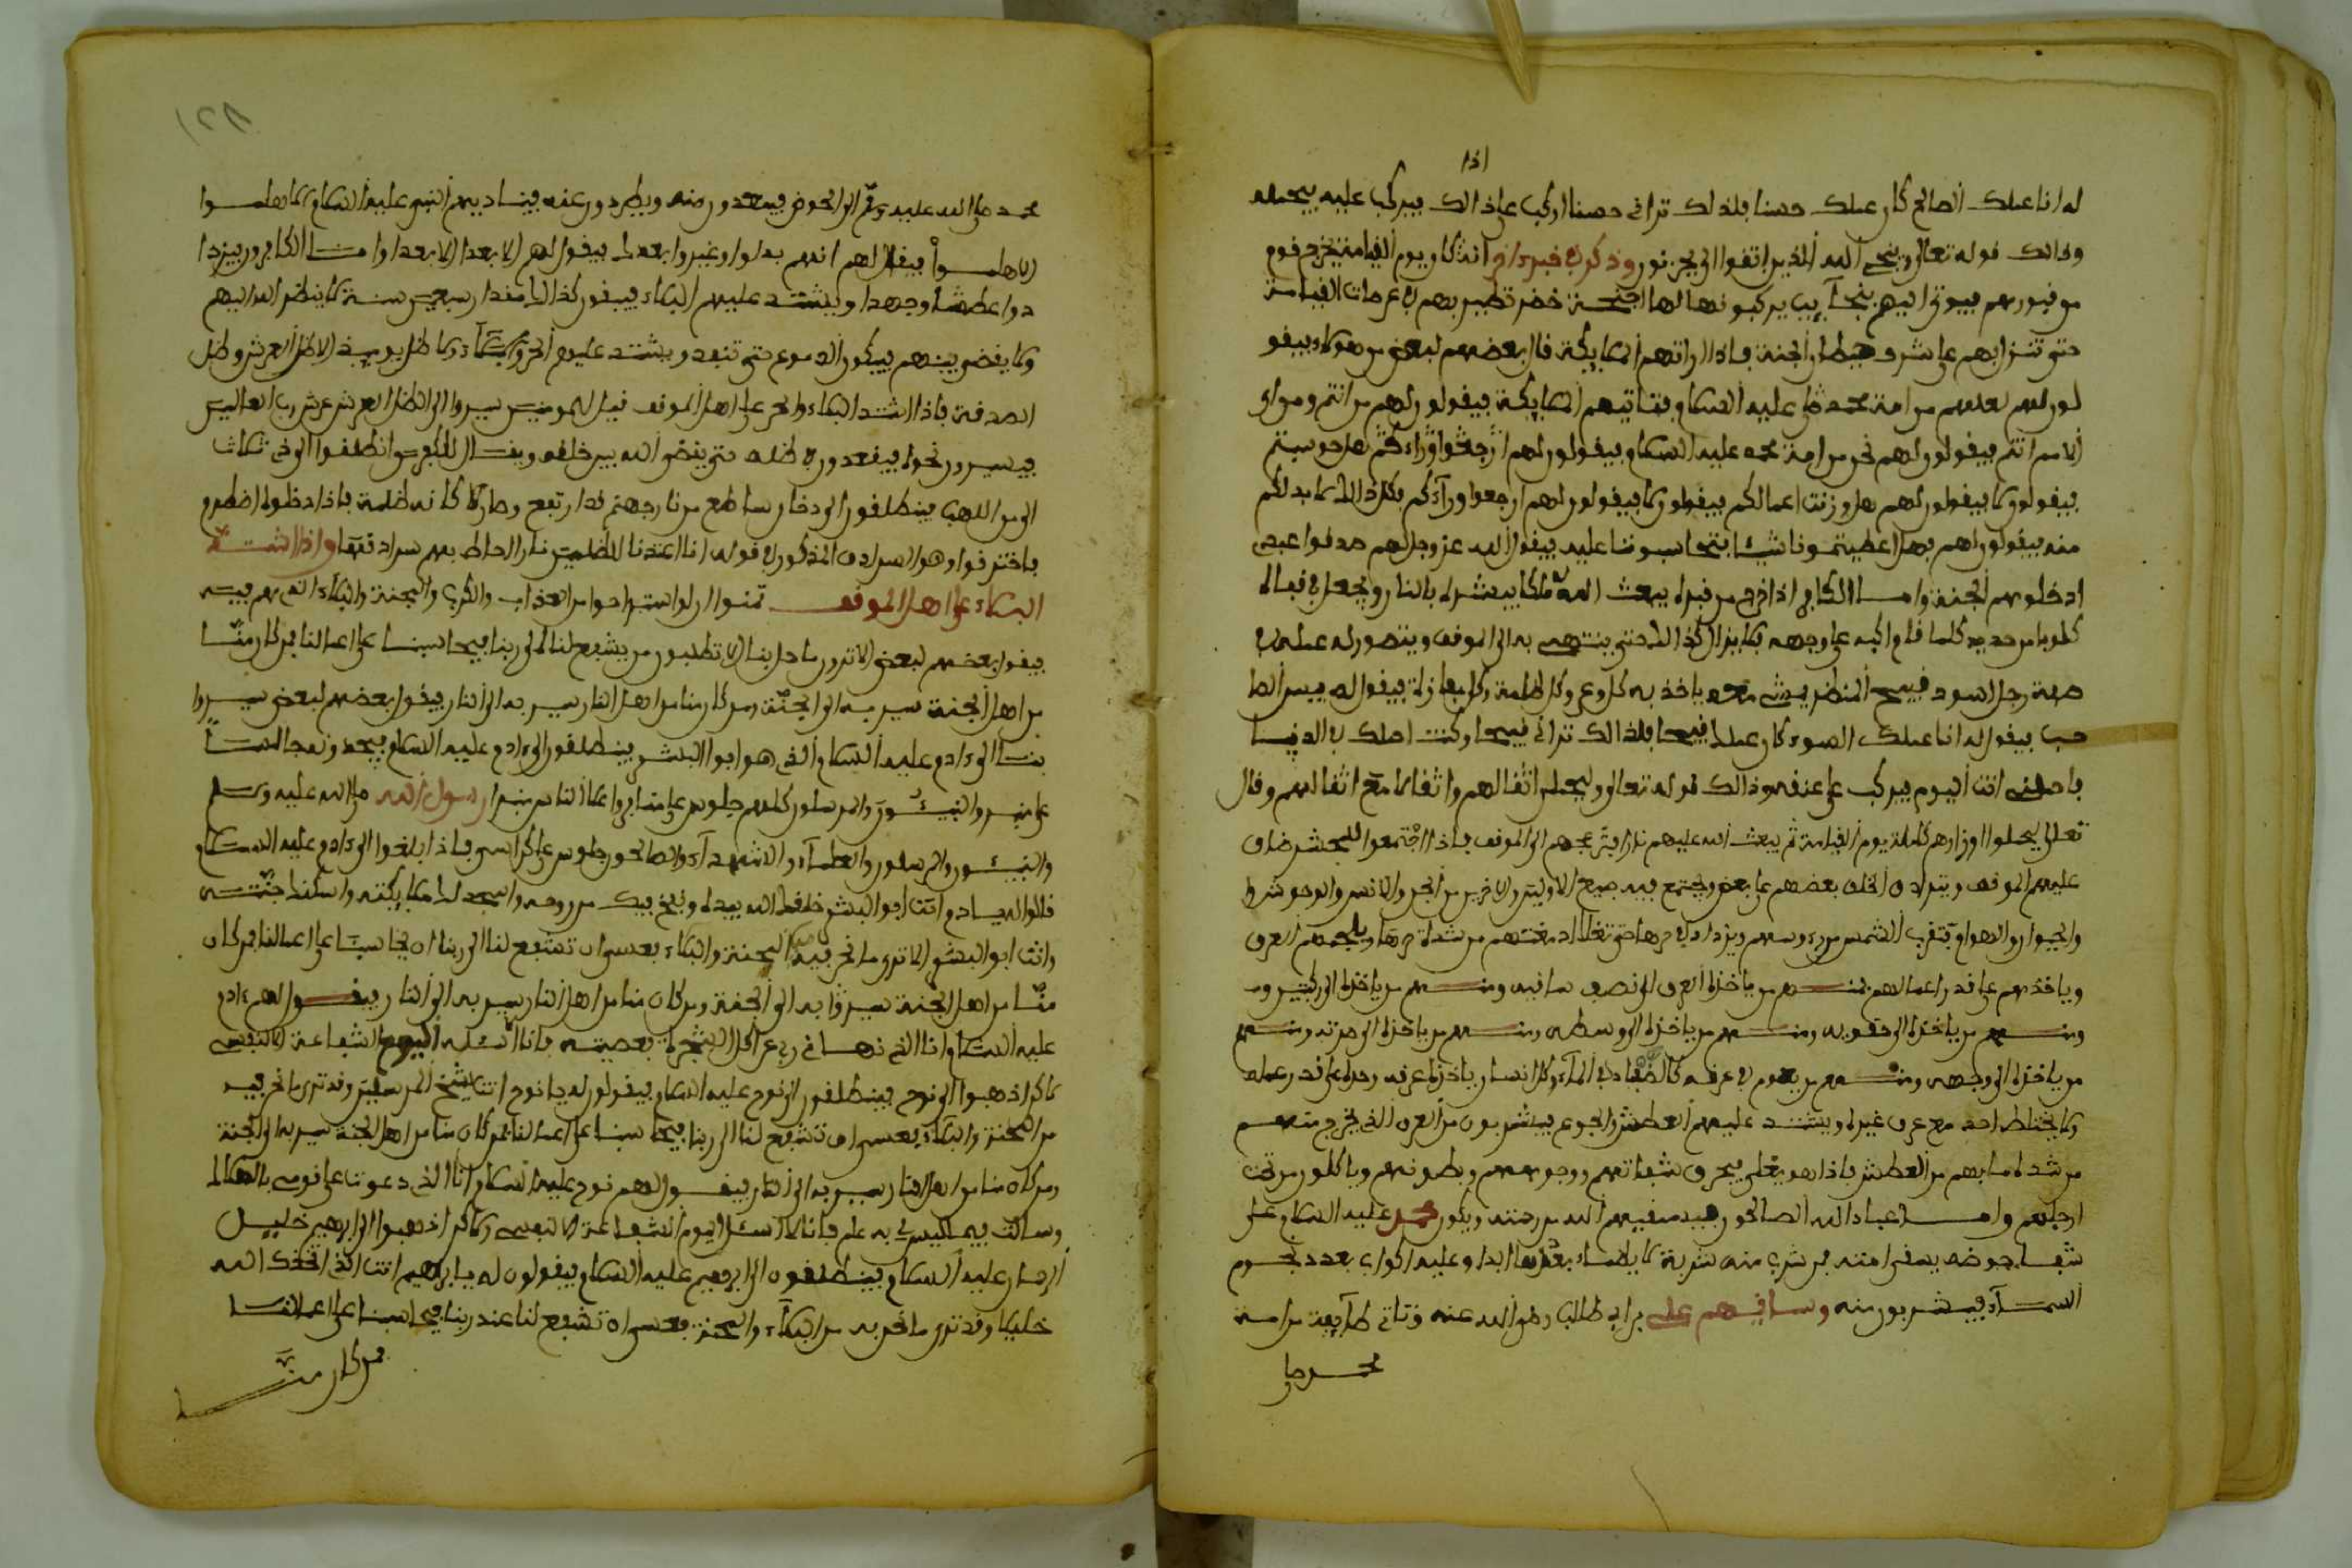 اذا
له انا عملك الصالح كان عملك حسنا بلذلك تراني حسنا اركب علي ذالك فيركب عليه يحمله
وذالك قوله تعالى وينجي الله الذين اتقوا الى يحزنون وذكر في خبر اخر انه كان يوم القيامة يخرج قوم
من قبورهم فيوتى اليهم بنجآيب يركبونها لها اجنحة خضر تطير بهم في عرصات القيامة
حتى تنزل بهم على شرف حيطان الجنة فاذا راتهم الملايكة قال بعضهم لبعض من هولاء فيقو
لون لهم لعلهم من امة محمد صلى عليه السلام فتاتيهم الملايكة فيقولون لهم من انتم ومن اي
الامم انتم فيقولون لهم نحن من امة محمد عليه السلام فيقولون لهم ارجعوا وراءكم هل حوسبتم
فيقولون لا فيقولون لهم هل وزنت اعمالكم فيقولون لا فيقولون لهم ارجعوا ورآءكم فكل ذالك لا بد لكم
منه فيقولون لهم هل اعطيتمونا شيئا فتحاسبونا عليه فيقول الله عز وجل لهم صدقوا عبادي
ادخلوهم الجنة وامـا الكافر اذا خرج من قبره يبعث الله ملكا يبشره بالنار ويجعل في فيه
كلوبا من حديد كلما قام اكبه على وجهه فلا يزال كذالك حتى ينتهي به الى الموقف ويتصور له عمله في
صفة رجل اسود قبيح المنظر يمشي معه ياخذ به كل وعر وكل ظلمة وكل مغارة فيقول له بيس الصا
حب فيقول له انا عملك السوء كان عملك قبيحا بلذالك تراني قبيحا وكنت احملك في الدنيا
فاحملني انت اليوم فيركب على عنقه وذالك قوله تعالى وليحملن اثقالهم واثقالا مع اثقالهم وقال
تعالى ليحملوا اوزارهم كاملة يوم القيامة ثم يبعث الله عليهم نارا فتزعجهم الى الموقف فاذا اجتمعوا للمحشر ضاق
عليهم الموقف ويتراد الخلق بعضهم على بعض ويجتمع فيه جميع الاولين والاخرين من الجن والانس والوحوش
والحيوان والهوام فتقرب الشمس من رءوسهم ويزداد في حرها حتى تغلا ادمغتهم من شدة حرها ويلجمهم العرق
وياخذهم على قدر اعمالهم فمنـهم من ياخذه العرق الى نصف ساقيه ومنـهم من ياخذه الى ركبتيه ومـ
ومنـهم من ياخذه الى حقويه ومنـهم من ياخذه الى وسطه ومنـهم من ياخذه الى صدره ومنـهم
من ياخذه الى وجهه ومنـهم من يعوم في عرقه كالضفادع في المآء وكل انسان ياخذه عرقه وحده على قدر عمله
ولا يختلط احد مع عرق غيره ويشتد عليهم العطش والجوع فيشربون من العرق الذي يخرج منهـم
من شدة ما بهم من العطش فاذا هو يغلي فيحرق شفاتهم ووجوههم وبطونهم وياكلون من تحت
ارجلهم وامـا عباد الله الصالحون فيسقيهم الله من رحمته ويكون محمد عليه السلام على
شفا حوضه يسقي امته فمن شرب منه شربة لا يظمأ بعدها ابدا وعليه اكواب بعدد نجوم
السمـآء فيشربون منه وساقيهم علي بن ابي طالب رضي الله عنه وتاتي طآيفة من امـة
محمد صلى
محمد صلى الله عليه وسلم الى الحوض فيبعدون منه ويطردون عنه فيناديهم النبي عليه السلام الا هلمـوا
الا هلمـوا فيقال لهم انهم بدلوا وغيروا بعدك فيقول لهم الا بعدا الا بعدا وامـا الكافرون فيزدا
دوا عطشا وجهدا ويشتـد عليهم البكاء فيبقون كذالك مقدار سبعين سنـة لا ينظر الله اليهم
ولا يقضي بينهم فيبكون الدموع حتى تنفد ويشتد عليهم الحر والبكآء ولا ظل يوميذ الا ظل العرش وظل
الصدقة فاذا اشتد البكاء والحر على اهل الموقف قيل للمومنين سيروا الى ظل العرش عرش رب العالمين
فيسيرون نحوه فيقعدون في ظله حتى يقضي الله بين خلقه ويقـال للكافرين انطلقوا الى ذي ثلاث
الى من اللهب فينطلقون الى دخان ساطع من نار جهنم قد ارتفع وصار كانه ظلمة فاذا دخلوه اظلم
فاختنقوا وهو السرادق المذكور في قوله انا اعتدنا للظلمين نارا احاط بهم سرادقها واذا اشتـد
البكاء على اهل الموقف تمنـوا ان لو استراحوا من العذاب والكرب والمحنة والبكاء الذي هم فيـه
فيقول بعضهم لبعض الا ترون ما حل بنا الا تطلبون من يشفع لنا الى ربنا فيحاسبنـا على اعمالنا فمن كان منـا
من اهل الجنة سير به الى الجنة ومن كان منا من اهل النار سير به الى النار فيقول بعضهم لبعض سيـروا
بنـا الى ءادم عليه السلام الذي هو ابو البشر فينطلقون الى ءادم عليه السلام فيجدونه جالسـا
على منبر والنبيـئون والمرسلون كلهم جلوس على منابر واعلى الناس منبرا رسول الله صلى الله عليه وسلم
والنبيـئون والمرسلون والعلمآء والشهدآء والصالحون جلوس على كراسي فاذا بلغوا الى ءادم عليه السلام
قالوا له يـا ءادم انت ابو البشر خلقك الله بيده ونفخ فيك من روحه واسجد لك ملايكته واسكنك جنتـه
وانت ابو البشر الا ترى ما نحن فيه من المحنة والبكاء فعسى ان تشفع لنا الى ربنا ان يحاسبنا على اعمالنا فمن كان
منـا من اهل الجنة سير به الى الجنة ومن كان منا من اهل النار سير به الى النار فيقـول لهم ءادم
عليه السلام انا الذي نهـاني ربي عن اكل الشجرة فعصيتـه فانا لا اسئله اليوم الشفاعة الا لنفسي
لاكن اذهبوا الى نوح فينطلقون الى نوح عليه السلام فيقولون له يا نوح انت شيخ المرسلين وقد ترى ما نحن فيـه
من المحنة والبكاء فعسى ان تشفع لنا الى ربنا فيحاسبنا على اعمالنا فمن كان منا من اهل الجنة سير به الى الجنة
ومن كان منا من اهل النار سير به الى النار فيقـول لهم نوح عليه السلام انا الذي دعوت على قومي بالهلاك
وسالت فيما ليس لي به علم فانا لا اسئل اليوم الشفاعة الا لنفسي ولاكن اذهبوا الى ابرهيم خليـل
الرحمان عليه السلام فينطلقون الى ابرهيم عليه السلام فيقولون له يا ابرهيم انت الذي اتخذك اللـه
خليلا وقد ترى ما نحن به من البكآء والمحنة فعسى ان تشفع لنا عند ربنا فيحاسبنا على اعمالنـا
فمن كان منـا